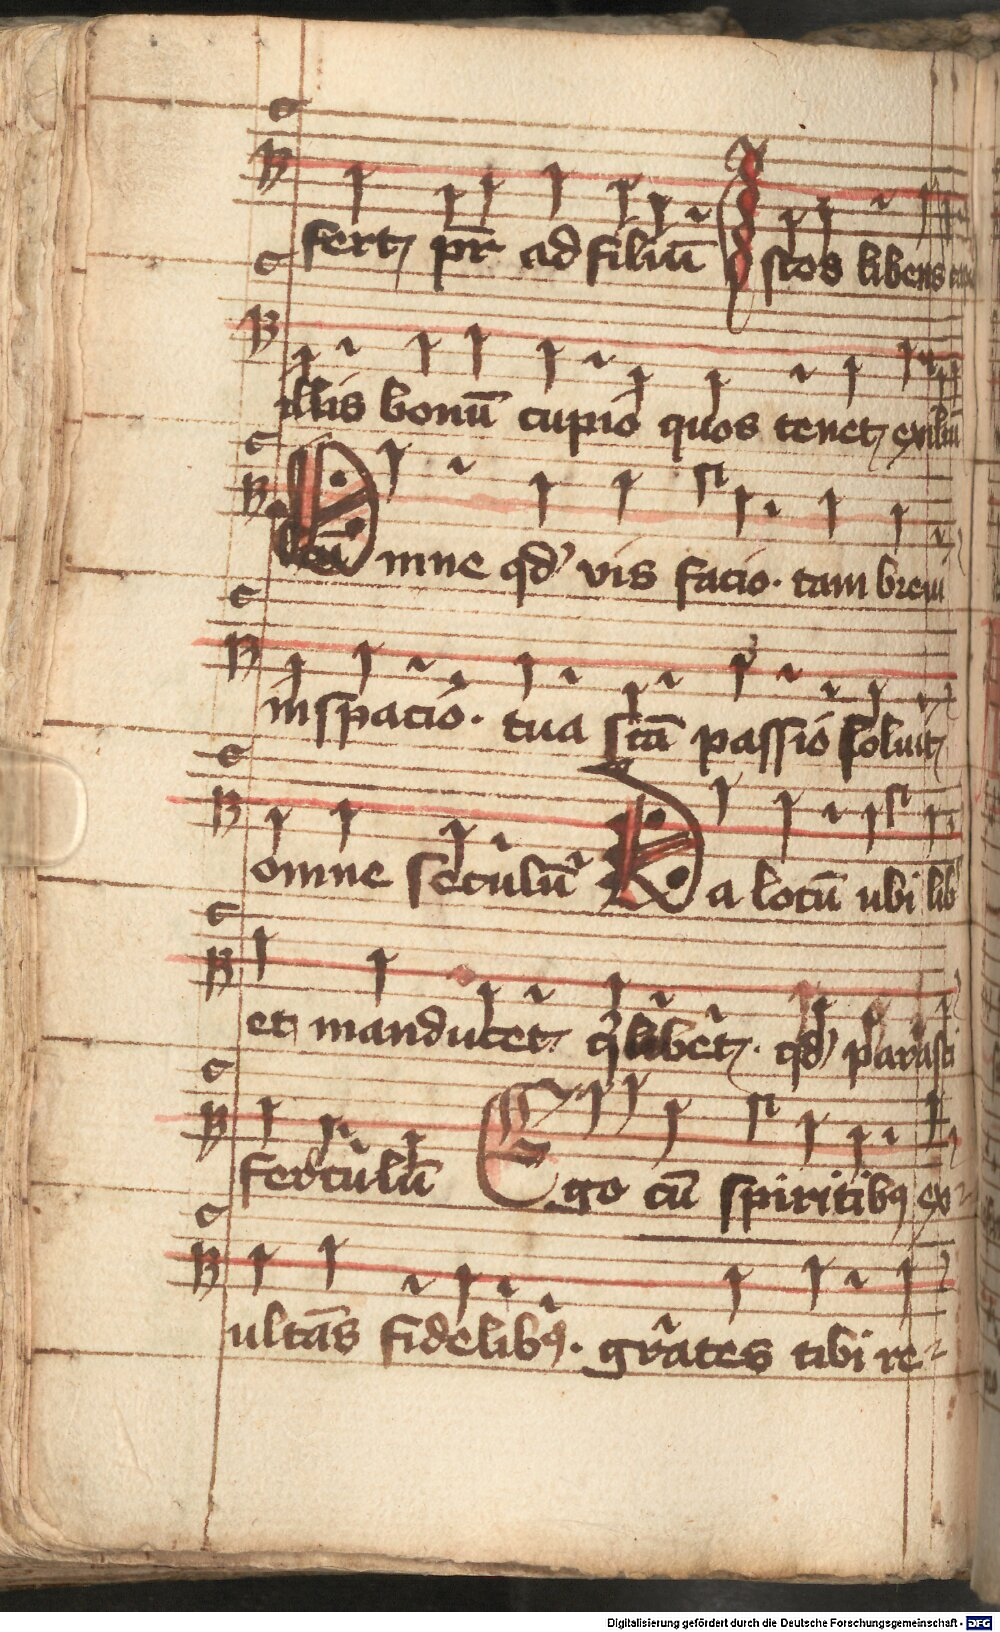 fert pr̄ ad filiū Istos libens
illis bonū cupio quos tenet exiliū
Omne qd' vis facio · tam brevi
in spacio · tua sctā passio soluit
omne seculū Da locū ubi lib
et manducet q̄libet · qd' parasti
ferculū Ego cū spiritibꝫ ex
ultās fidelibꝫ · grates tibi re
Digitalisierung gefördert durch die Deutsche Forschungsgemeinschaft - DFG